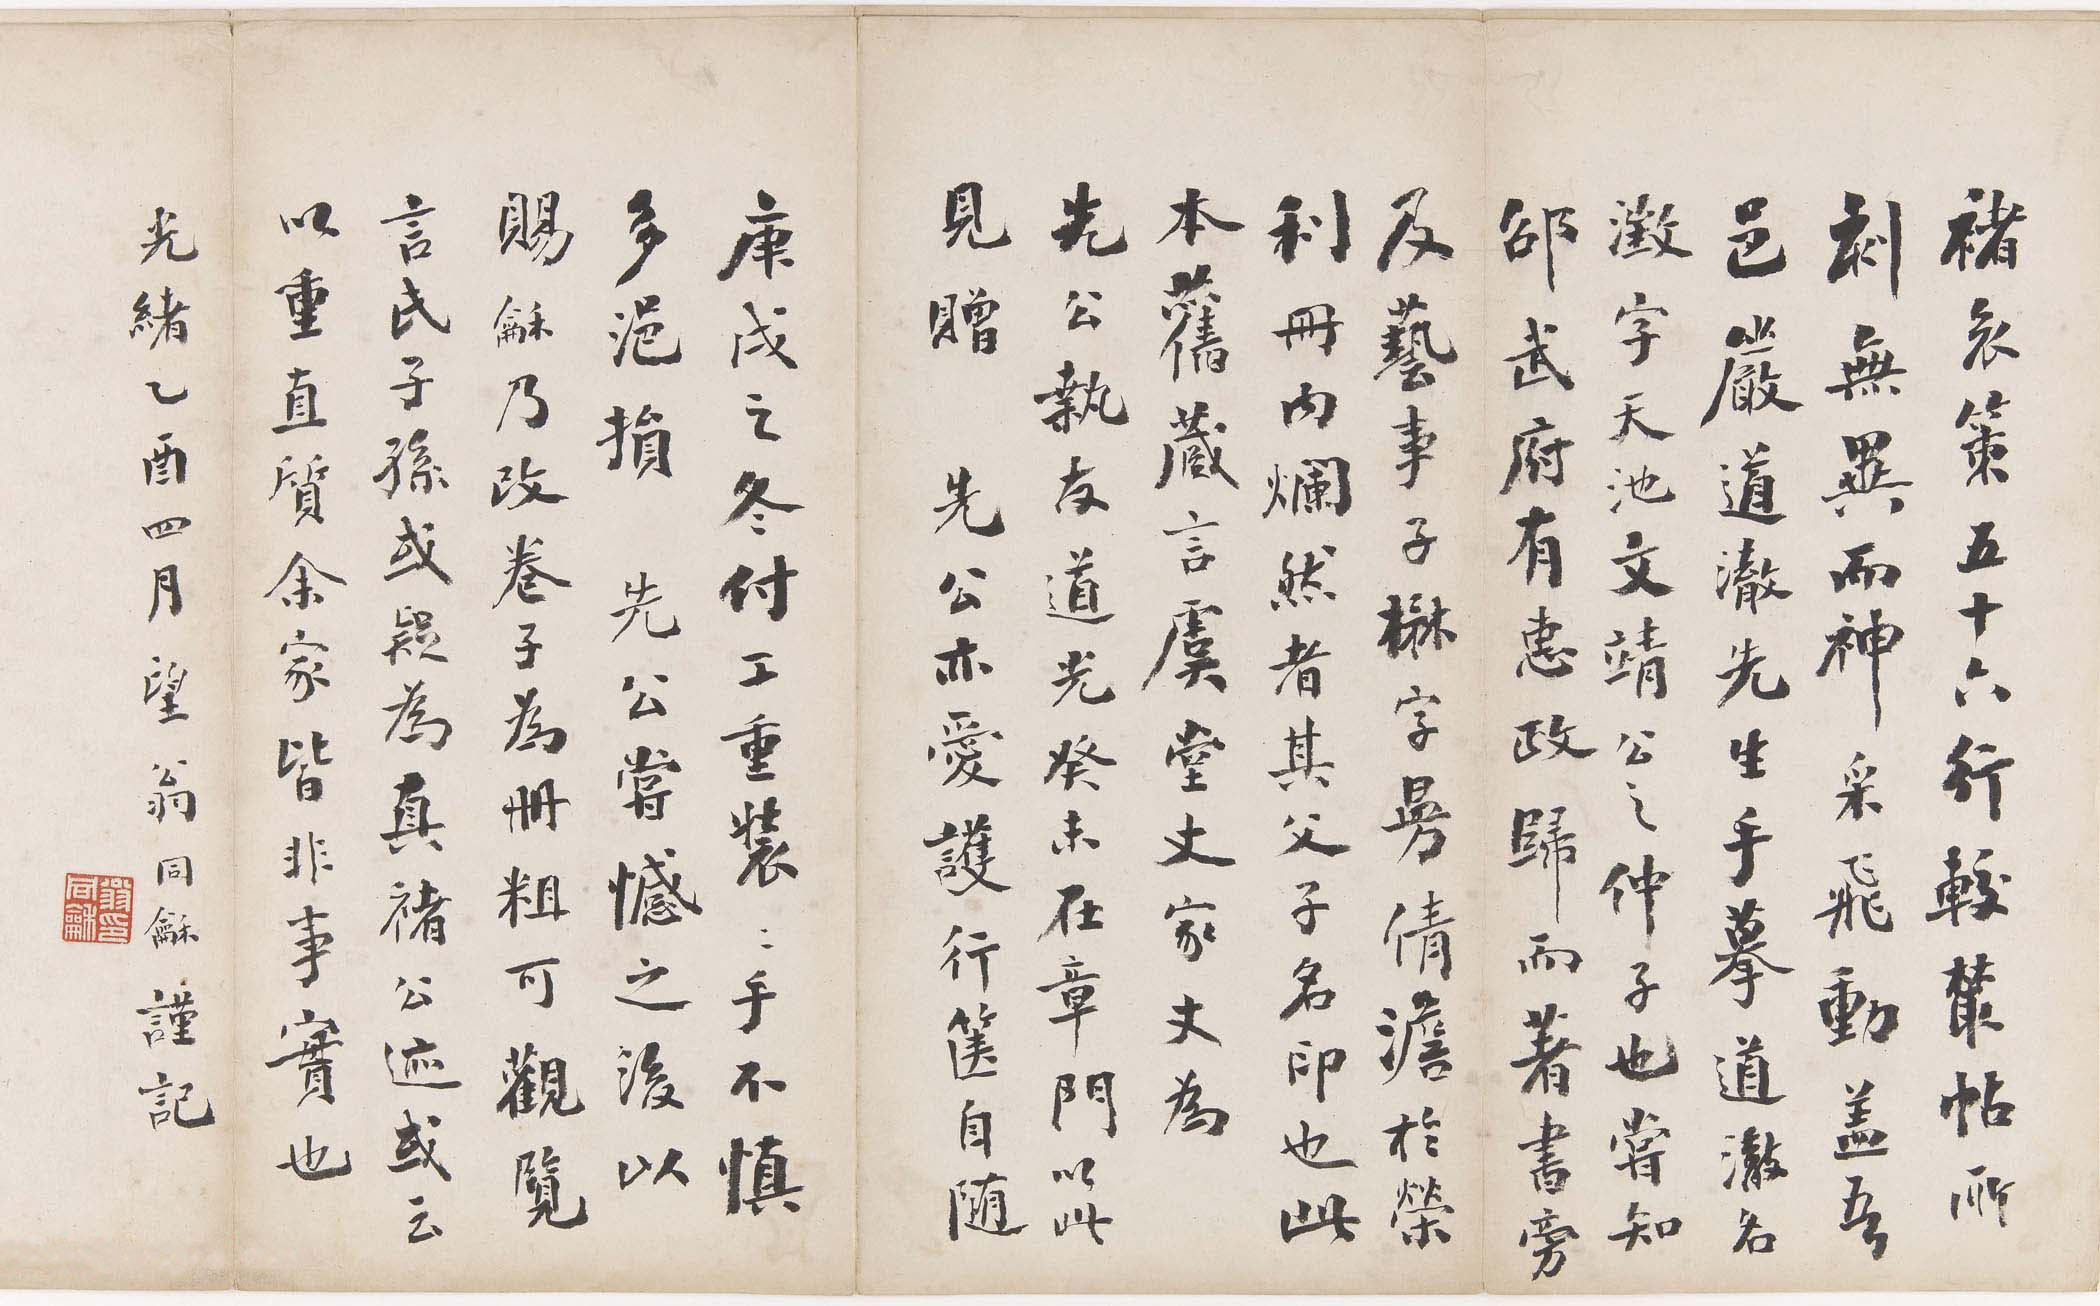 褚哀策五十六行較叢帖所
刻無異而神采飛動蓋吾
邑嚴道澈先生手摹道澈名
澂字天池文靖公之仲子也嘗知
邵武府有惠政歸而著書旁
及藝事子楙字曼倩澹於榮
利冊內爛然者其父子名印也此
本舊藏言虞堂丈家丈為
先公執友道光癸未在章門以此
見贈 先公亦愛護行篋自隨
庚戌之冬付工重裝〻手不慎
多浥損 先公嘗憾之後以
賜龢乃改卷子為冊粗可觀覽
言氏子孫或疑為真褚公迹或云
以重直質余家皆非事實也
光緒乙酉四月望翁同龢謹記
翁印同龢